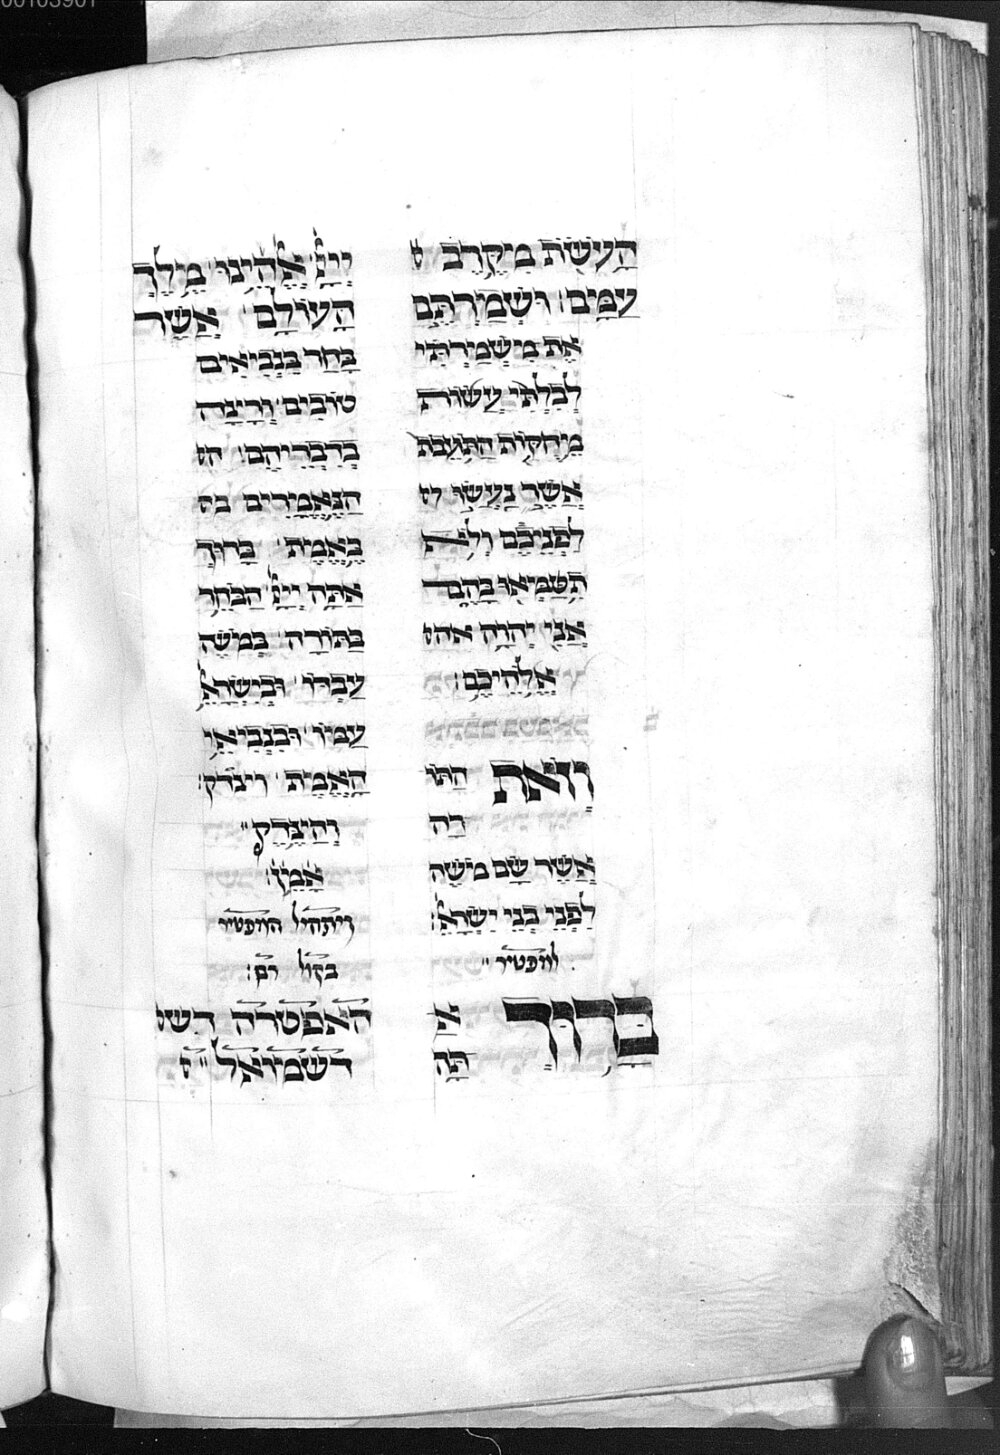 הָעֹשֹׂת מִקֶּרֶב
עַמָּם׃ וּשְׁמַרְתֶּם
אֶת מִשְׁמַרְתִּי
לְבִלְתִּי עֲשׂוֹת
מֵחֻקּוֹת הַתּוֹעֵבֹת
אֲשֶׁר נַעֲשׂוּ
לִפְנֵיכֶם וְלֹא
תִטַּמְּאוּ בָּהֶם
אֲנִי יְהוָה
אֱלֹהֵיכֶם׃
וְזֹאת הַתּוֹ
רָה
אֲשֶׁר שָׂם מֹשֶׁה
לִפְנֵי בְּנֵי יִשְׂרָאֵל׃
למפטיר
בָּרוּךְ א
תָּה
יְיָ אֱלֹהֵינוּ מֶלֶךְ
הָעוֹלָם אֲשֶׁר
בָּחַר בִּנְבִיאִים
טוֹבִים וְרָצָה
בְדִבְרֵיהֶם הנ
הַנֶּאֱמָרִים בא
בֶּאֱמֶת בָּרוּךְ
אַתָּה יְיָ הַבּוֹחֵר
בַּתּוֹרָה בְּמֹשֶׁה
עַבְדּוֹ וּבְיִשְׂרָאֵל
עַמּוֹ וּבִנְבִיאֵי
הָאֱמֶת וצדק׃
וְהַצֶּדֶק
אָמֵן׃
ויתחיל המפטיר
בקול רם׃
האפטרה דש
דשמואל